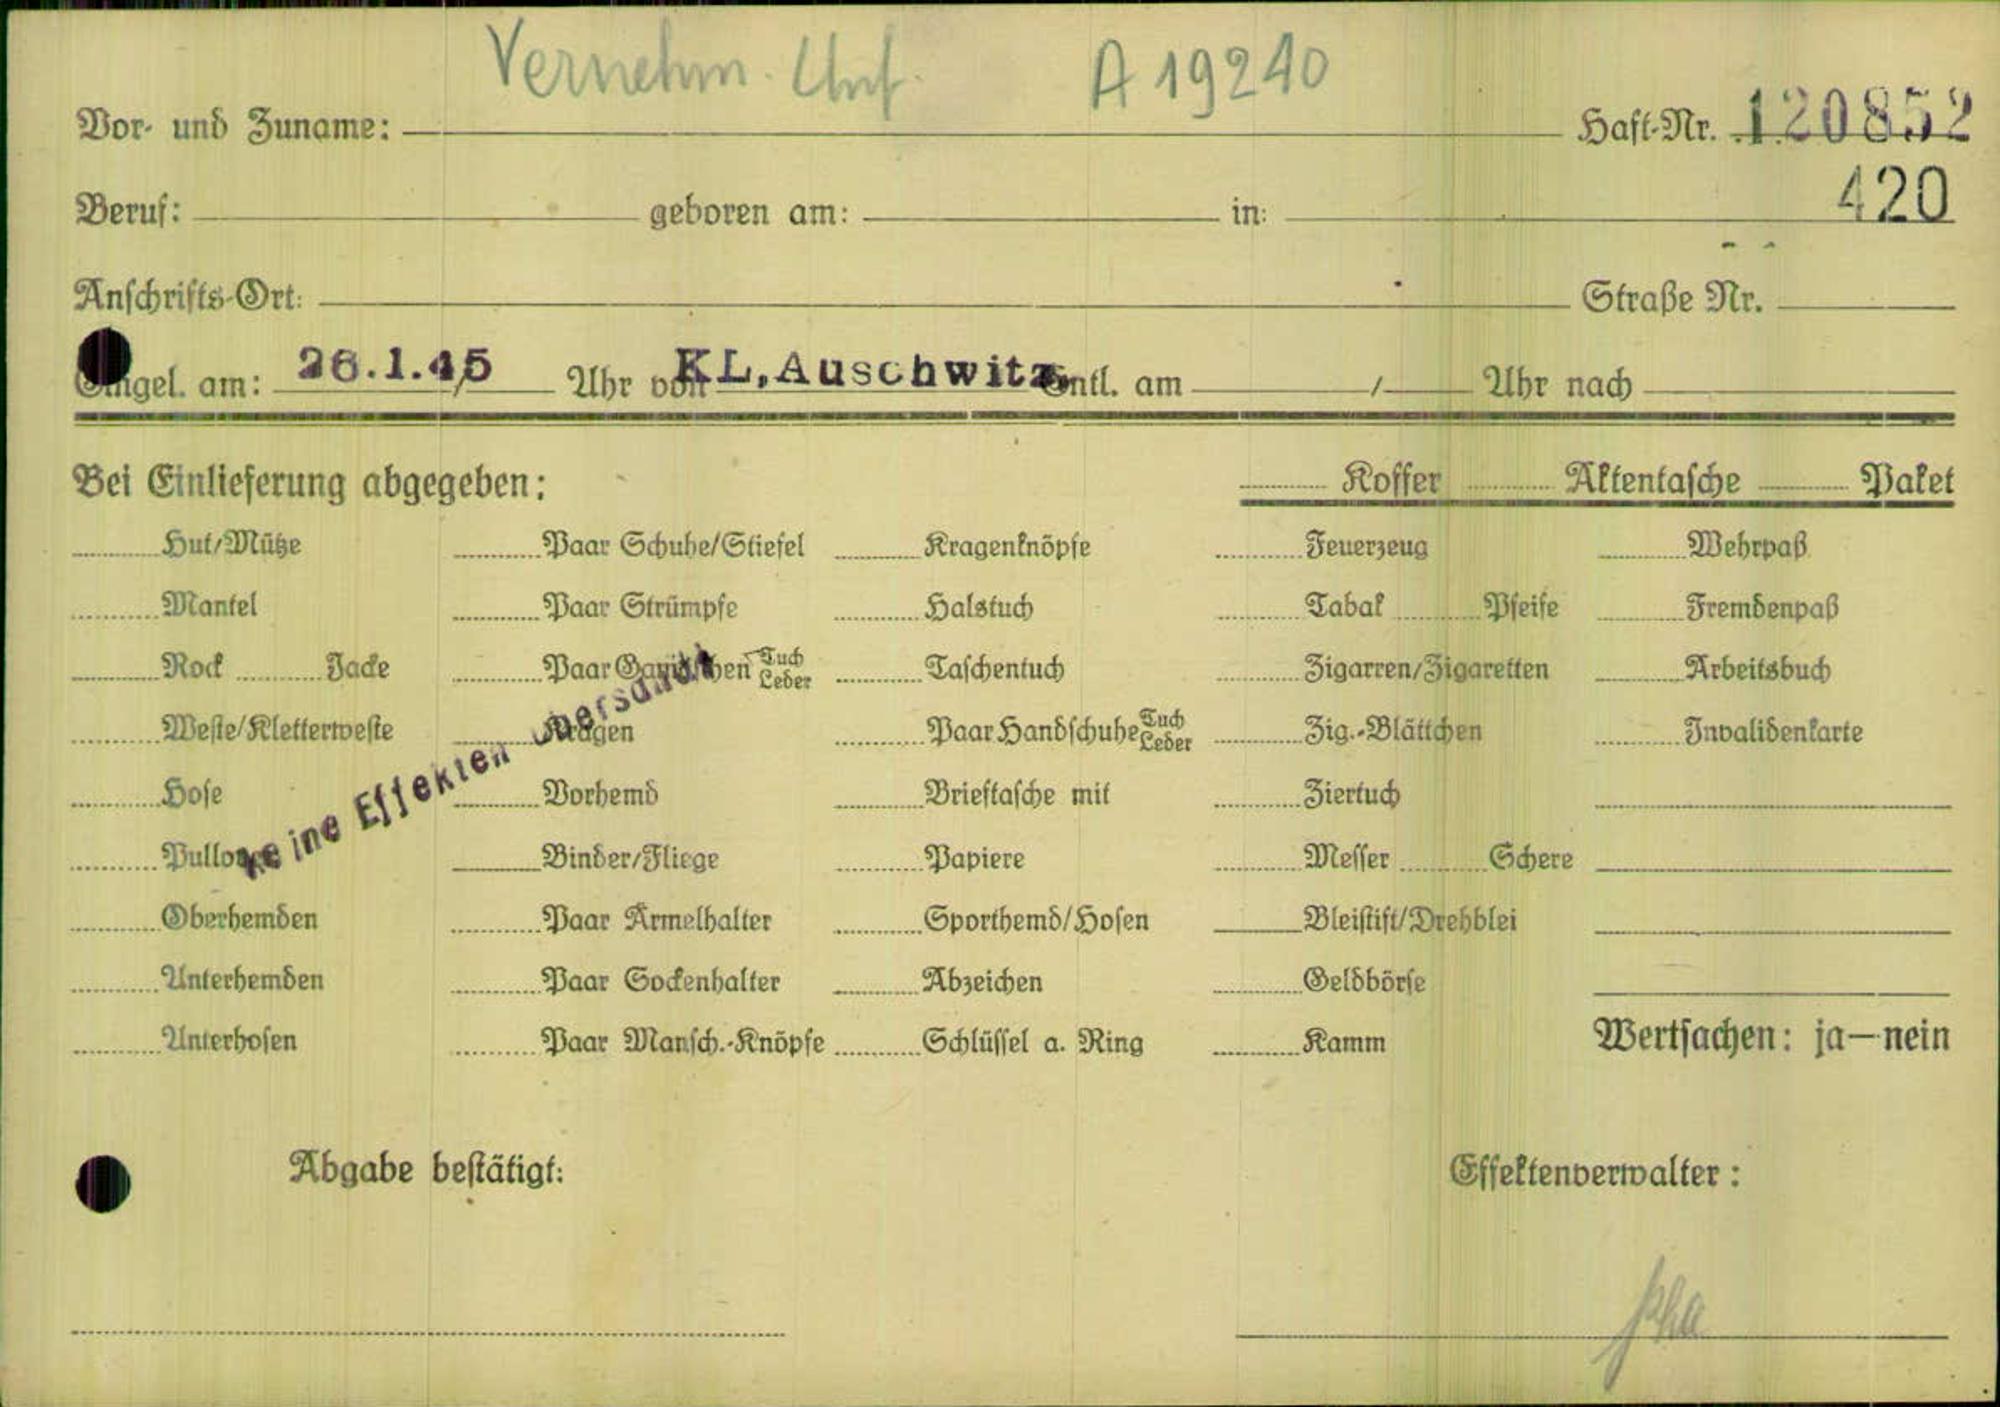 Vernehm. Unf. A 19240
Vor- und Zuname: Haft-Nr. 120852
420
Beruf: geboren am: in:
Anschrifts-Ort: Straße Nr.
Eingel. am: 26.1.45 Uhr von KL, Auschwitz Entl. am / Uhr nach
Bei Einlieferung abgegeben: Koffer Aktentasche Paket
Hut/Mütze Paar Schuhe/Stiefel Kragenknöpfe Feuerzeug Wehrpaß
Mantel Paar Strümpfe Halstuch Tabak Pfeife Fremdenpaß
Rock Jacke Paar Gamaschen Tuch Leder Taschentuch Zigarren/Zigaretten Arbeitsbuch
Weste/Kletterweste Kragen Paar Handschuhe Tuch Leder Zig.-Blättchen Invalidenkarte
Hose Vorhemd Brieftasche mit Ziertuch
Pullover Binder/Fliege Papiere Messer Schere
keine Effekten übersandt
Oberhemden Paar Ärmelhalter Sporthemd/Hosen Bleistift/Drehblei
Unterhemden Paar Sockenhalter Abzeichen Geldbörse
Unterhosen Paar Mansch.-Knöpfe Schlüssel a. Ring Kamm Wertsachen: ja—nein
Abgabe bestätigt: Effektenverwalter: